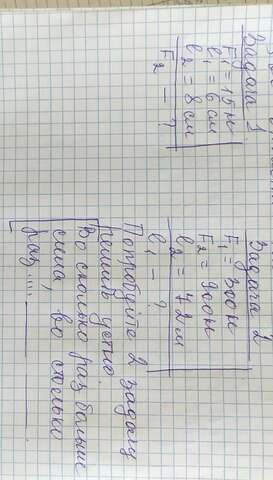 Задача 1
F₁ = 15 н
l₁ = 6 см
l₂ = 8 см
F₂ – ?
Задача 2
F₁ = 300 н
F₂ = 900 н
l₂ = 42 м
l₁ – ?
Попробуйте 2 задачу
решить устно
Во сколько раз больше
сила, во столько
раз ....